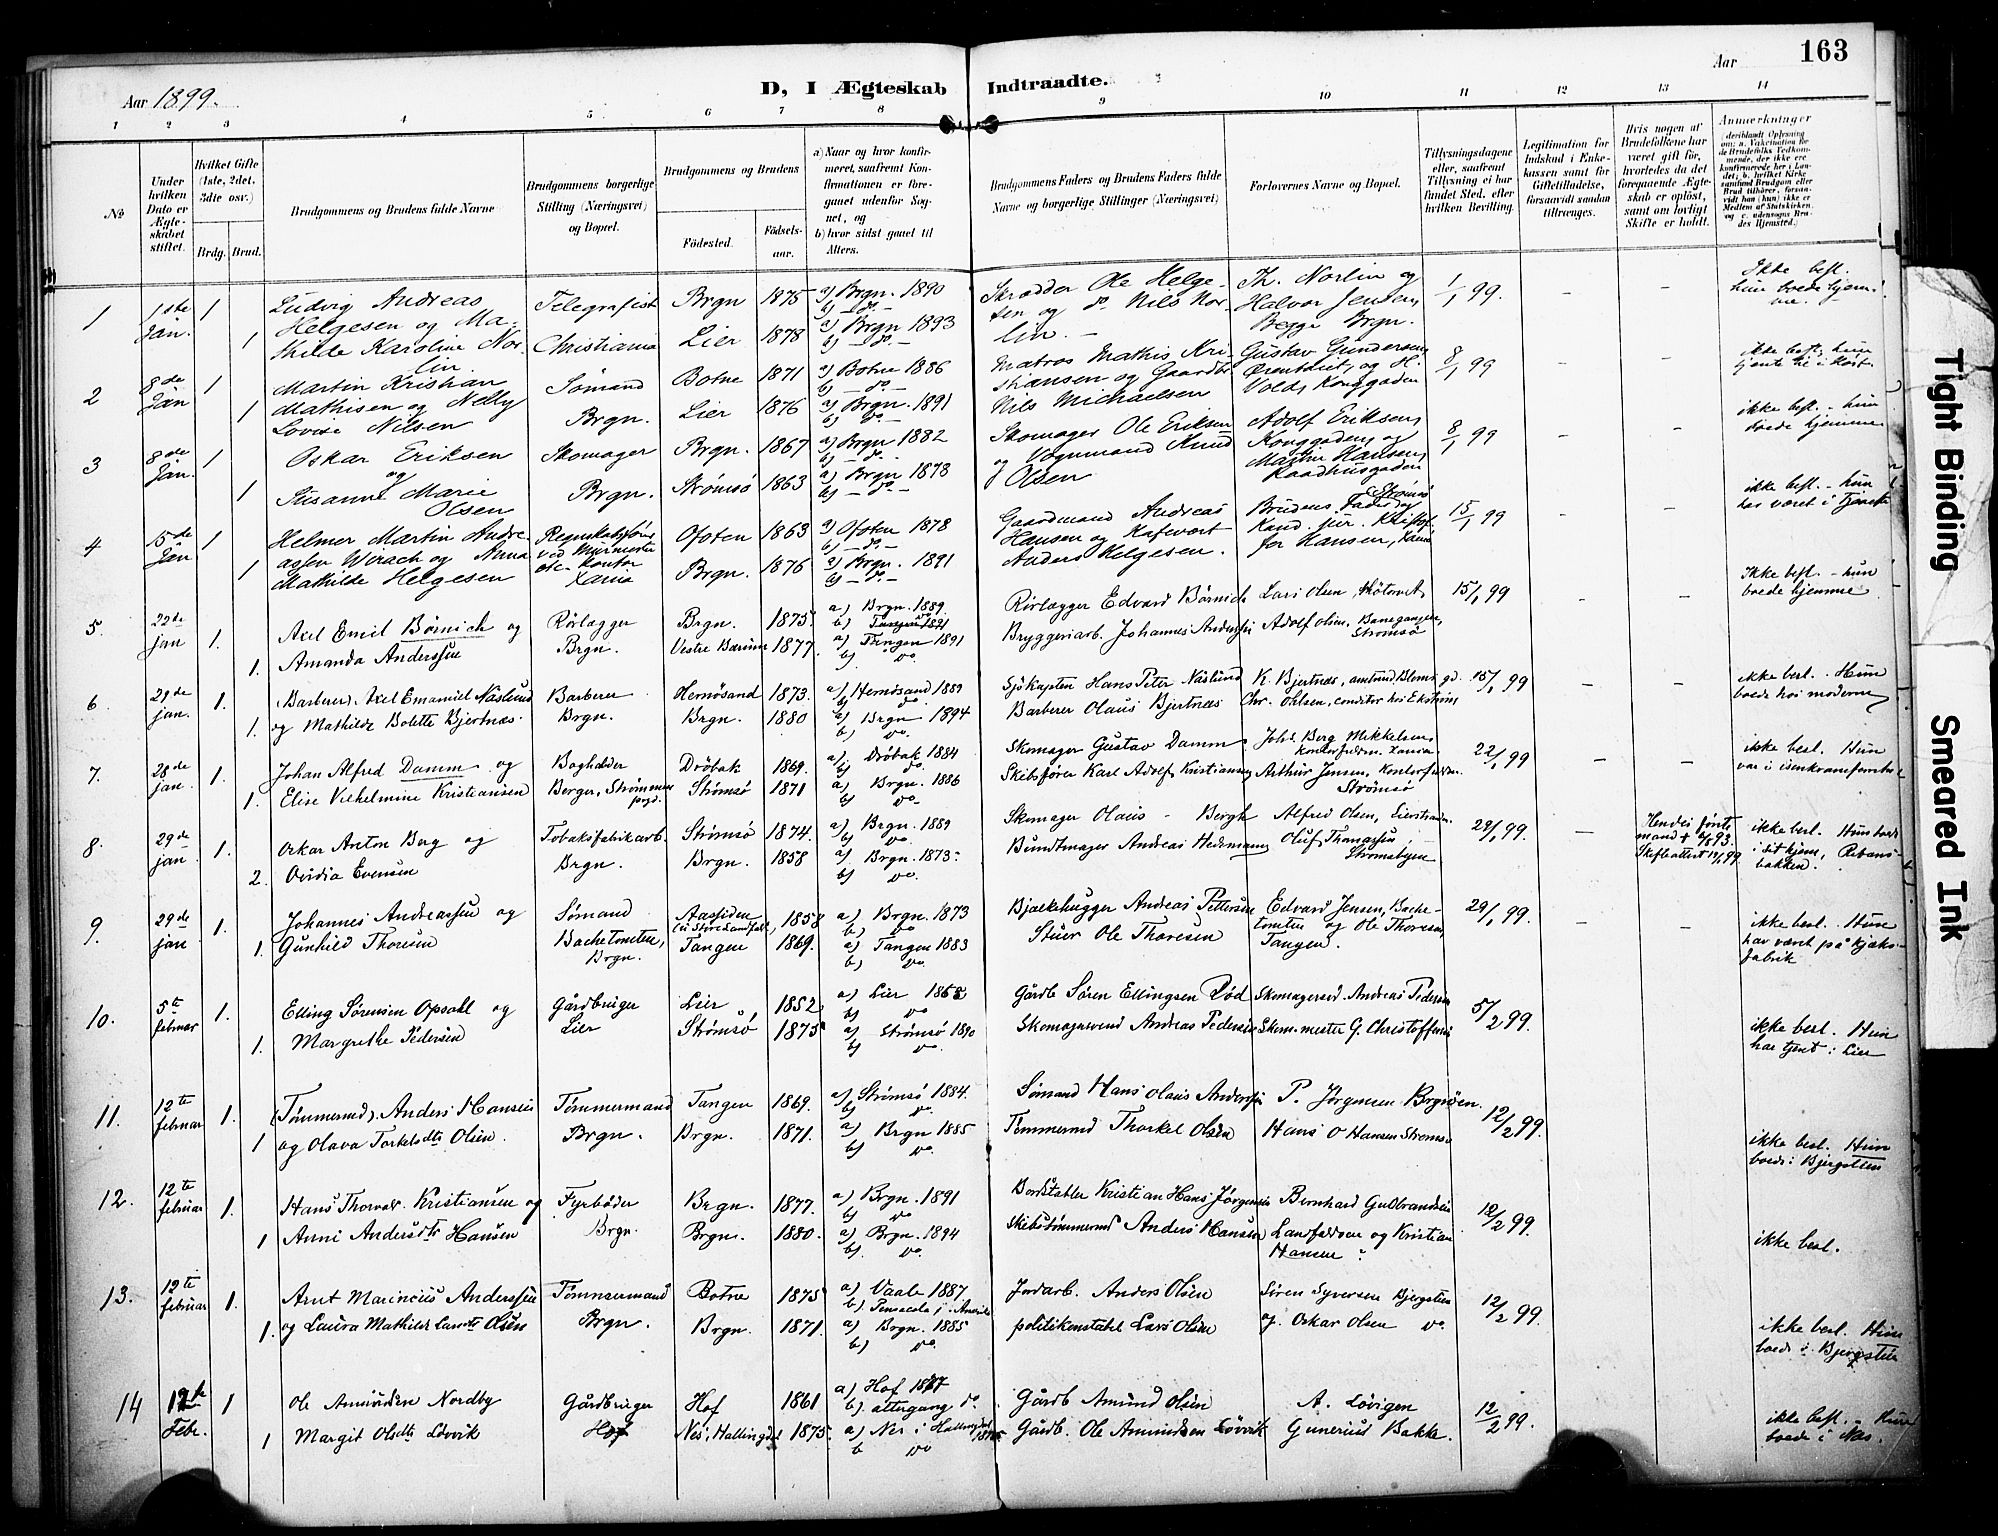 163
Aar 1899.
D, I Ægteskab Indtraadte.
Aar
1 2 3 4 5 6 7 8 9 10 11 12 13 14
No
Under hvilken Dato er Ægteskabet stiftet.
Hvilket Gifte (1ste, 2det, 3die osv.)
Brdg. Brud.
Brudgommens og Brudens fulde Navne
Brudgommens borgerlige Stilling (Næringsvei) og Bopæl.
Brudgommens og Brudens
Födested. Födselsaar.
a) Naar og hvor konfirmeret, saafremt Konfirmationen er foregaaet udenfor Sognet, og
b) hvor sidst gaaet til Alters.
Brudgommens Faders og Brudens Faders fulde Navne og borgerlige Stillinger (Næringsvei)
Forlovernes Navne og Bopæl.
Tillysningsdagene eller, saafremt Tillysning ei har fundet Sted, efter hvilken Bevilling.
Legitimation for Indskud i Enkekassen samt for Giftetilladelse, forsaavidt saadan tiltrænges.
Hvis nogen af Brudefolkene har været gift för, hvorledes da det foregaaende Ægteskab er oplöst, samt om lovligt Skifte er holdt.
Anmerkninger
1 1ste Jan. 1 1
Ludvig Andreas
Helgesen og Ma-
thilde Karoline Nor-
lin
Telegrafist
Christiania
Brgn 1875 a) Brgn. 1890 b) — do. —
Lier 1878 a) Brgn 1893 b) — do. —
Skrædder Ole Helge-
sen og do. Nils Nor-
lin. —
Th. Norlin og
Halvor Jensen,
Begge Brgn.
1/1 99. – –
Ikke besl.
hun boede hjem-
me. –
2 8de Jan 1 1
Martin Kristian
Mathisen og Nelly
Lovise Nilsen
Sömand
Brgn.
Botne 1871 a) Botne 1886 b) — do. —
Lier 1876 a) Brgn. 1891 b) — do. —
Matros Mathis Kri-
stiansen og Gaardbr
Nils Michaelsen
Gustav Gundersen,
og H.
Vold, Konggaden
8/1 99 – –
ikke besl, hun
tjente
3 8de Jan. 1 1
Oskar Eriksen
og
Susanne Marie
Olsen
Skomager
Brgn.
Brgn. 1867 a) Brgn. 1882 b) — do. —
Strömsö 1863 a) Brgn 1878 b) — do. —
Skomager Ole Eriksen
og Vognmand Knud
Olsen
Adolf Eriksen,
Konggaden, og
Martin Hansen,
Raadhusgaden
8/1 99 – –
ikke besl. – hun
boede hjemme
4 15de Jan 1 1
Helmer Martin Andre-
assen Wirach og Anna
Mathilde Helgesen
Regnskabsförer
ved Murmester
kontor
Xania
Ofoten 1863 a) Ofoten 1878 b) — do. —
Brgn. 1876 a) Brgn. 1891 b) — do. —
Gaardmand Andreas
Hansen og Kafevært
Anders Helgesen.
Brudens Fader, Strömsö og
Kand. jur. Kristof-
fer Hansen, Xania
15/1 99 – –
ikke besl. – hun
har været i Tjeneste
5. 22de jan 1. 1.
Axel Emil Börnich og
Amanda Anderssen
Rörlægger
Brgn.
Brgn. 1875. a) Brgn. 1889. b) Tangen 1891
Vestre Bærum 1877. a) Tangen 1891 b) do.
Rörlægger Edvard Börnich
Bryggeriarb. Johannes Anderssen
Lars Olsen,
Adolf Olsen, Banegangen,
Strömsö
15/1 99 – –
Ikke besl. – hun
boede hjemme
6. 29de jan. 1. 1.
(Barberer) Axel Emanuel Näslund
og Mathilde Bolette Bjertnæs.
Barberer
Brgn.
Hernösand 1873. a) Hernösand 1889 b) do.
Brgn. 1880 a) Brgn 1894 b) do.
Sjökapten Hans Peter Näslund
Barberer Olaus Bjertnæs
K. Bjertnæs,
Chr. Ohlsen, conditor hos Ekström
15/1 99 – –
ikke besl. Hun
boede hos moderen
7. 28de jan. 1. 1.
Johan Alfred Damm og
Elise Vilhelmine Kristiansen
Bogholder
Berger, Strömmens
prgd.
Dröbak 1869. a) Dröbak 1884 b) do.
Strömsö 1871 a) Brgn. 1886 b) do.
Skomager Gustav Damm
Skibsförer Karl Adolf Kristiansen
Johs. Berg Mikkelsen,
kontorfuldm. Xania
Arthur Jensen, Kontorfuldm.
Strömsö
22/1 99 – –
ikke besl. Hun
var i
8. 29de jan 1. 2.
Oskar Anton Berg og
Ovidia Evensen
Tobaksfabrikarb.
Brgn.
Strömsö 1874. a) Brgn. 1889 b) do
Brgn. 1858 a) Brgn. 1873. b) do.
Skomager Olaus – Bergh
Bundtmager Andreas Hedemann
Alfred Olsen, Lierstranden
Oluf Thomassen,
Strömsbyen
29/1 99. –
Hendes förste
mand + 93.
Skifteattest 99
ikke besl. Hun boede
i sit hjem,
bakken.
9. 29de jan 1. 1.
Johannes Andreassen og
Gunhild Thorsen
Sömand
Bachetomten,
Brgn.
Aassiden 1858 a) Brgn. 1873 b) do
Tangen 1869. a) Tangen 1883 b) do.
Bjælkehugger Andreas Pettersen
Stuer Ole Thoresen
Edvard Jensen, Bache-
tomten og Ole Thoresen,
Tangen.
29/1 99. – –
ikke besl. Hun
har været på kjæks-
fabrik
10. 5te februar 1. 1.
Elling Sörensen Opsahl og
Margrethe Pedersen
Gårdbruger
Lier
Lier, 1852 a) Lier 1868 b) do
Strömsö 1875 a) Strömsö 1890 b) do.
Gårdb Sören Ellingsen Röd
Skomagersvend Andreas Pedersen
Skomagersvd. Andreas Pedersen
Skom.mester G. Christoffersen
5/2 99.
ikke besl. Hun
har tjent i Lier
11. 12te februar 1. 1
(Tömmermd). Anders Hansen
og Olava Torkelsdtr Olsen.
Tömmermand
Brgn.
Tangen 1869. a) Strömsö 1884. b) do.
Brgn. 1871. a) Brgn 1885 b) do.
Sömand Hans Olaus Anderssen
Temmermd Thorkel Olsen
P. Jörgensen Brgnöen.
Hans O Hansen Strömsö
12/2 99.
ikke besl. Hun
boede i Bjergsten
12. 12te februar 1. 1
Hans Thorvald Kristiansen og
Anni Andersdtr Hansen
Fyrböder
Brgn
Brgn. 1877. a) Brgn. 1891 b) do
Brgn. 1880. a) Brgn. 1894 b) do.
Bordstabler Kristian Hans Jörgensen
skibstömmermd Anders Hansen
Bernhard Gulbrandsen
Landfaldöen og Kristian
Hansen
12/2 99.
ikke besl.
13. 12te februar 1. 1.
Arnt Marincius Anderssen
og Laura Mathilde Larsdtr Olsen
Tömmermand
Brgn.
Botne 1875 a) Vaale 1887. b) Pensacola i Amerika
Brgn. 1871. a) Brgn. 1885 b) do.
Jordarb. Anders Olsen
politikonstabl Lars Olsen
Sören Syversen Bjergsten
og Oskar Olsen do.
12/2 99.
ikke besl. Hun
boede i Bjergsten
14 12te Febr. 1 1
Ole Amundsen Nordby
Margit Olsdtr Lövvik
Gårdbruger
Hof
Hof 1861 a) Hof 1877 b) altergang do.
Nes, Hallingdal 1875. a) Nes i Hallingdal b) do
Gårdb Amund Olsen
Gårdb. Ole Amundsen Lövvik
A. Lövigen
Gunerius Bakke.
12/2 99.
ikke besl. – Hun
boede i Nes.
Tight Binding
Smeared Ink